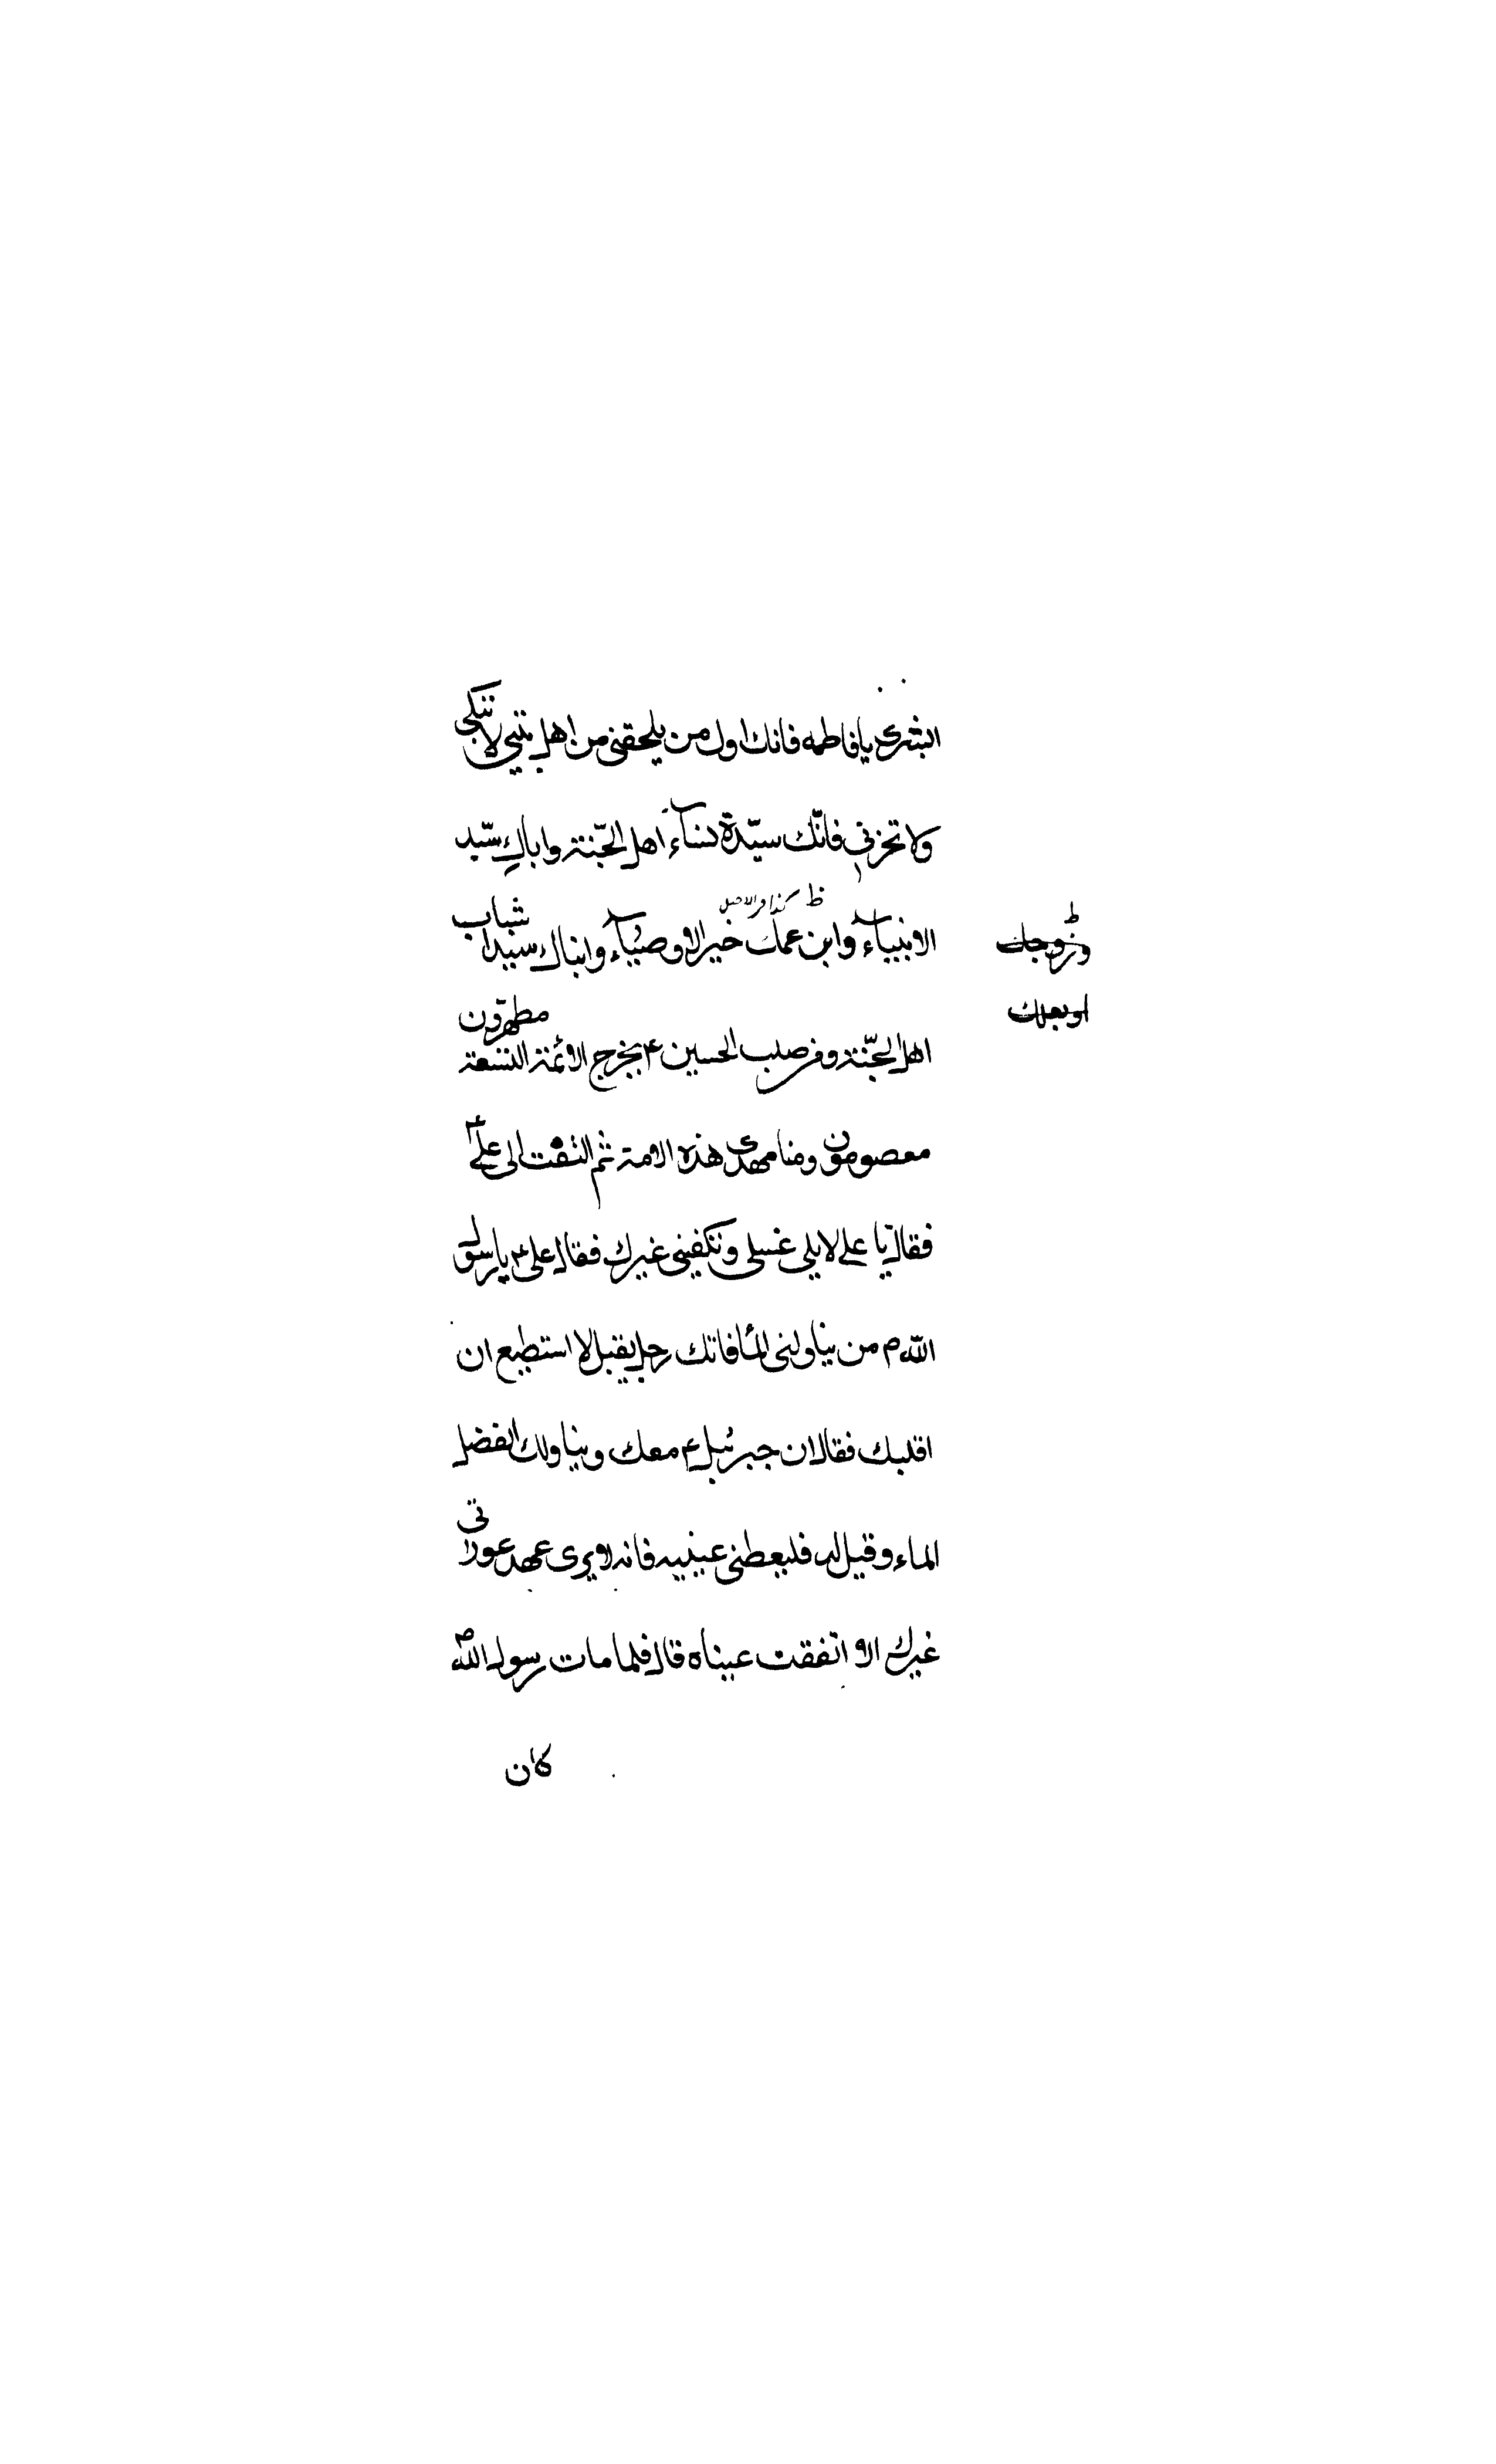 ابشرى يا فاطمه فانك اول من يلحقنى من اهل بيتى لا تبكى
ولا تحزنى فانّك سيّدة نسآء اهل الجنّة واباكِ سيّد
ظ كذا فى الاصل
الانبيآء وابن عمك خير الاوصيآء وابناك سيدا شباب
ظ
وزوجك
او بعلك
اهل الجنّة ومن صلب الحسين ع يخرج الائمة التسعة مطهرون
معصومون ومنا مهدى هذه الامة ثم التفت الى على ع
فقال يا على لا يلى غسلى وتكفينى غيرك فقال على ع يا رسول
الله م من يناولنى المأ فانك رجل يقتل لا استطيع ان
اقلبك فقال ان جبرئيل ع معك ويناولك الفضل
الماء وقيل له فليعطنى عينيه فانه لا يرى عهد عوراتى
غيرك الا انفقت عيناه قال فلما مات رسول الله ص
كان